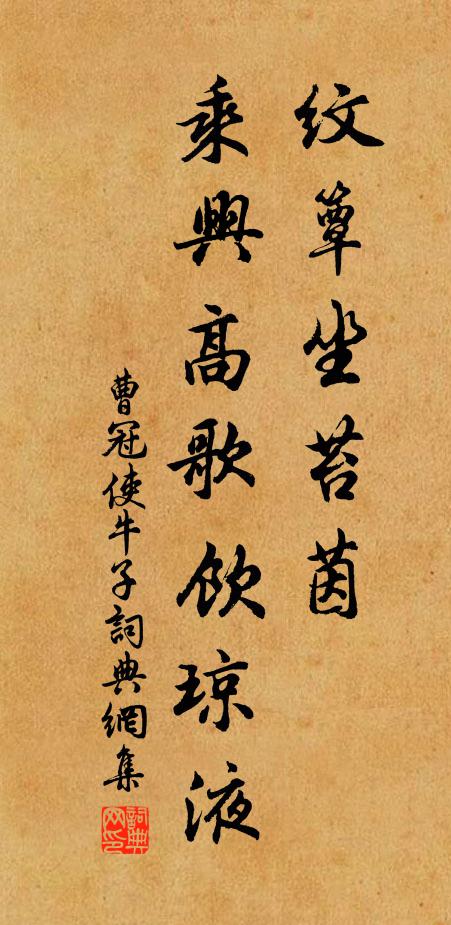 紋簟坐苔茵
乘興高歌飲琼液
曹冠使牛子詞典網集
詞典网印